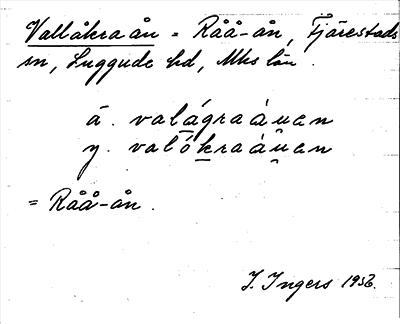 Vallåkra ån = Råå-ån, Fjärestads
sn, Luggude hd, Mhs län.
ä. valágraáuan
y. valókraáuan
= Råå-ån.
I. Ingers 1953.